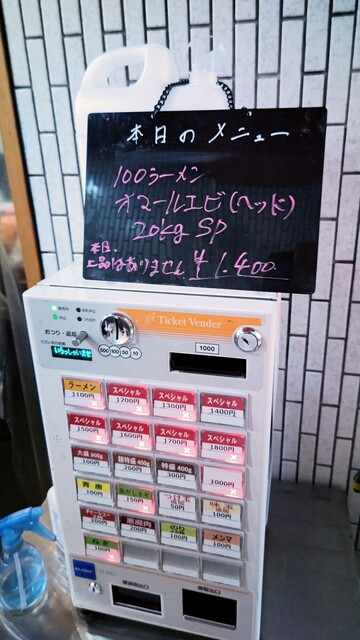 本日のメニュー
100ラーメン
オマールエビ(ヘッド)
20kg SP
本日、
上品はありません ¥1.400
Ticket Vender
おつり・返却
いらっしゃいませ
500 100 50 10
1000
ラーメン 1100円
スペシャル 1200円
スペシャル 1300円
スペシャル 1400円
スペシャル 1500円
スペシャル 1600円
スペシャル 1700円
スペシャル 1800円
大盛 300g 100円
超特盛 400g 200円
特盛 400g 300円
1000円
青唐 100円
150円
つけ玉 50円
100円
チャーシュー 200円
豚肉 200円
のり 100円
メンマ 100円
ねぎ 100円